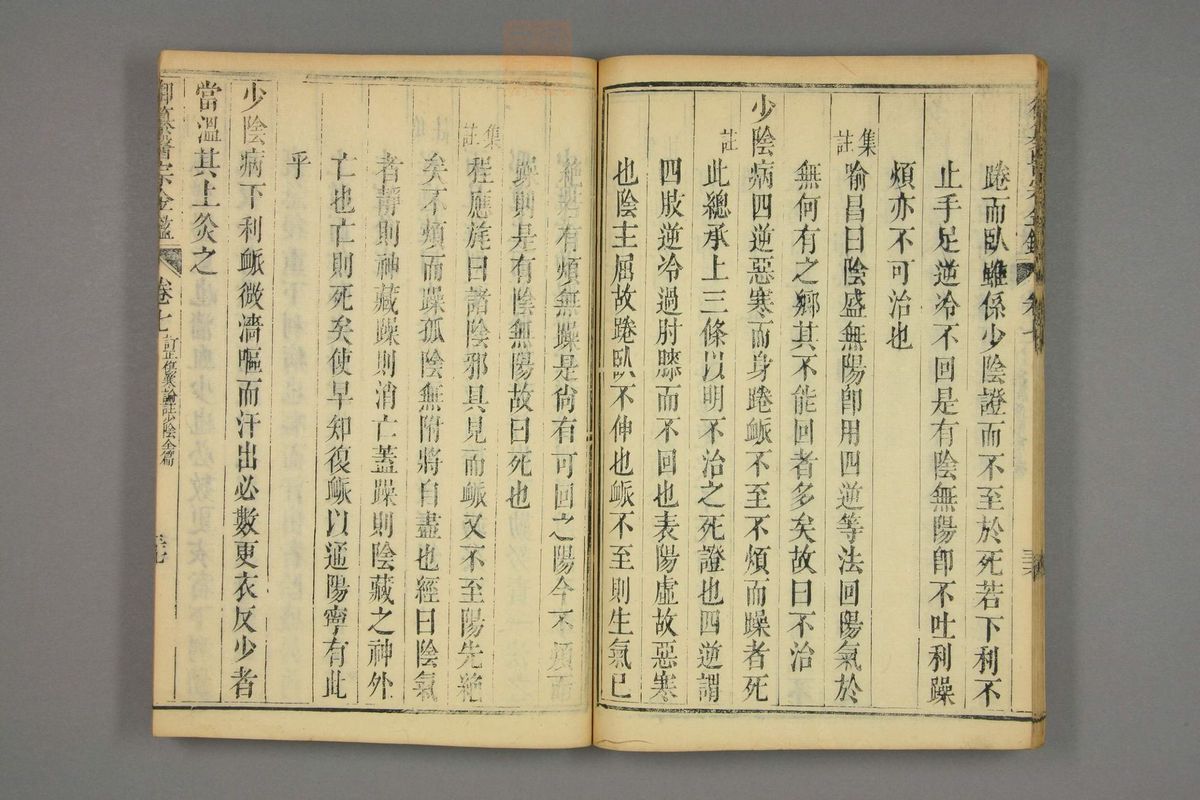 踡而臥雖係少陰證而不至於死若下利不
止手足逆冷不回是有陰無陽卽不吐利躁
煩亦不可治也
集註
喻昌曰陰盛無陽卽用四逆等法回陽氣於
無何有之鄉其不能回者多矣故曰不治
少陰病四逆惡寒而身踡脈不至不煩而躁者死
註
此總承上三條以明不治之死證也四逆謂
四肢逆冷過肘膝而不回也表陽虛故惡寒
也陰主屈故踡臥不伸也脈不至則生氣已
絕若有煩無躁是尙有可回之陽今不煩而
躁則是有陰無陽故曰死也
集註
程應旄曰諸陰邪具見而脈又不至陽先絕
矣不煩而躁孤陰無附將自盡也經曰陰氣
者靜則神藏躁則消亡蓋躁則陰藏之神外
亡也亡則死矣使早知復脈以通陽寧有此
乎
少陰病下利脈微濇嘔而汗出必數更衣反少者
當溫其上灸之
御纂醫宗金鑑 卷七 訂正傷寒論註少陰全篇